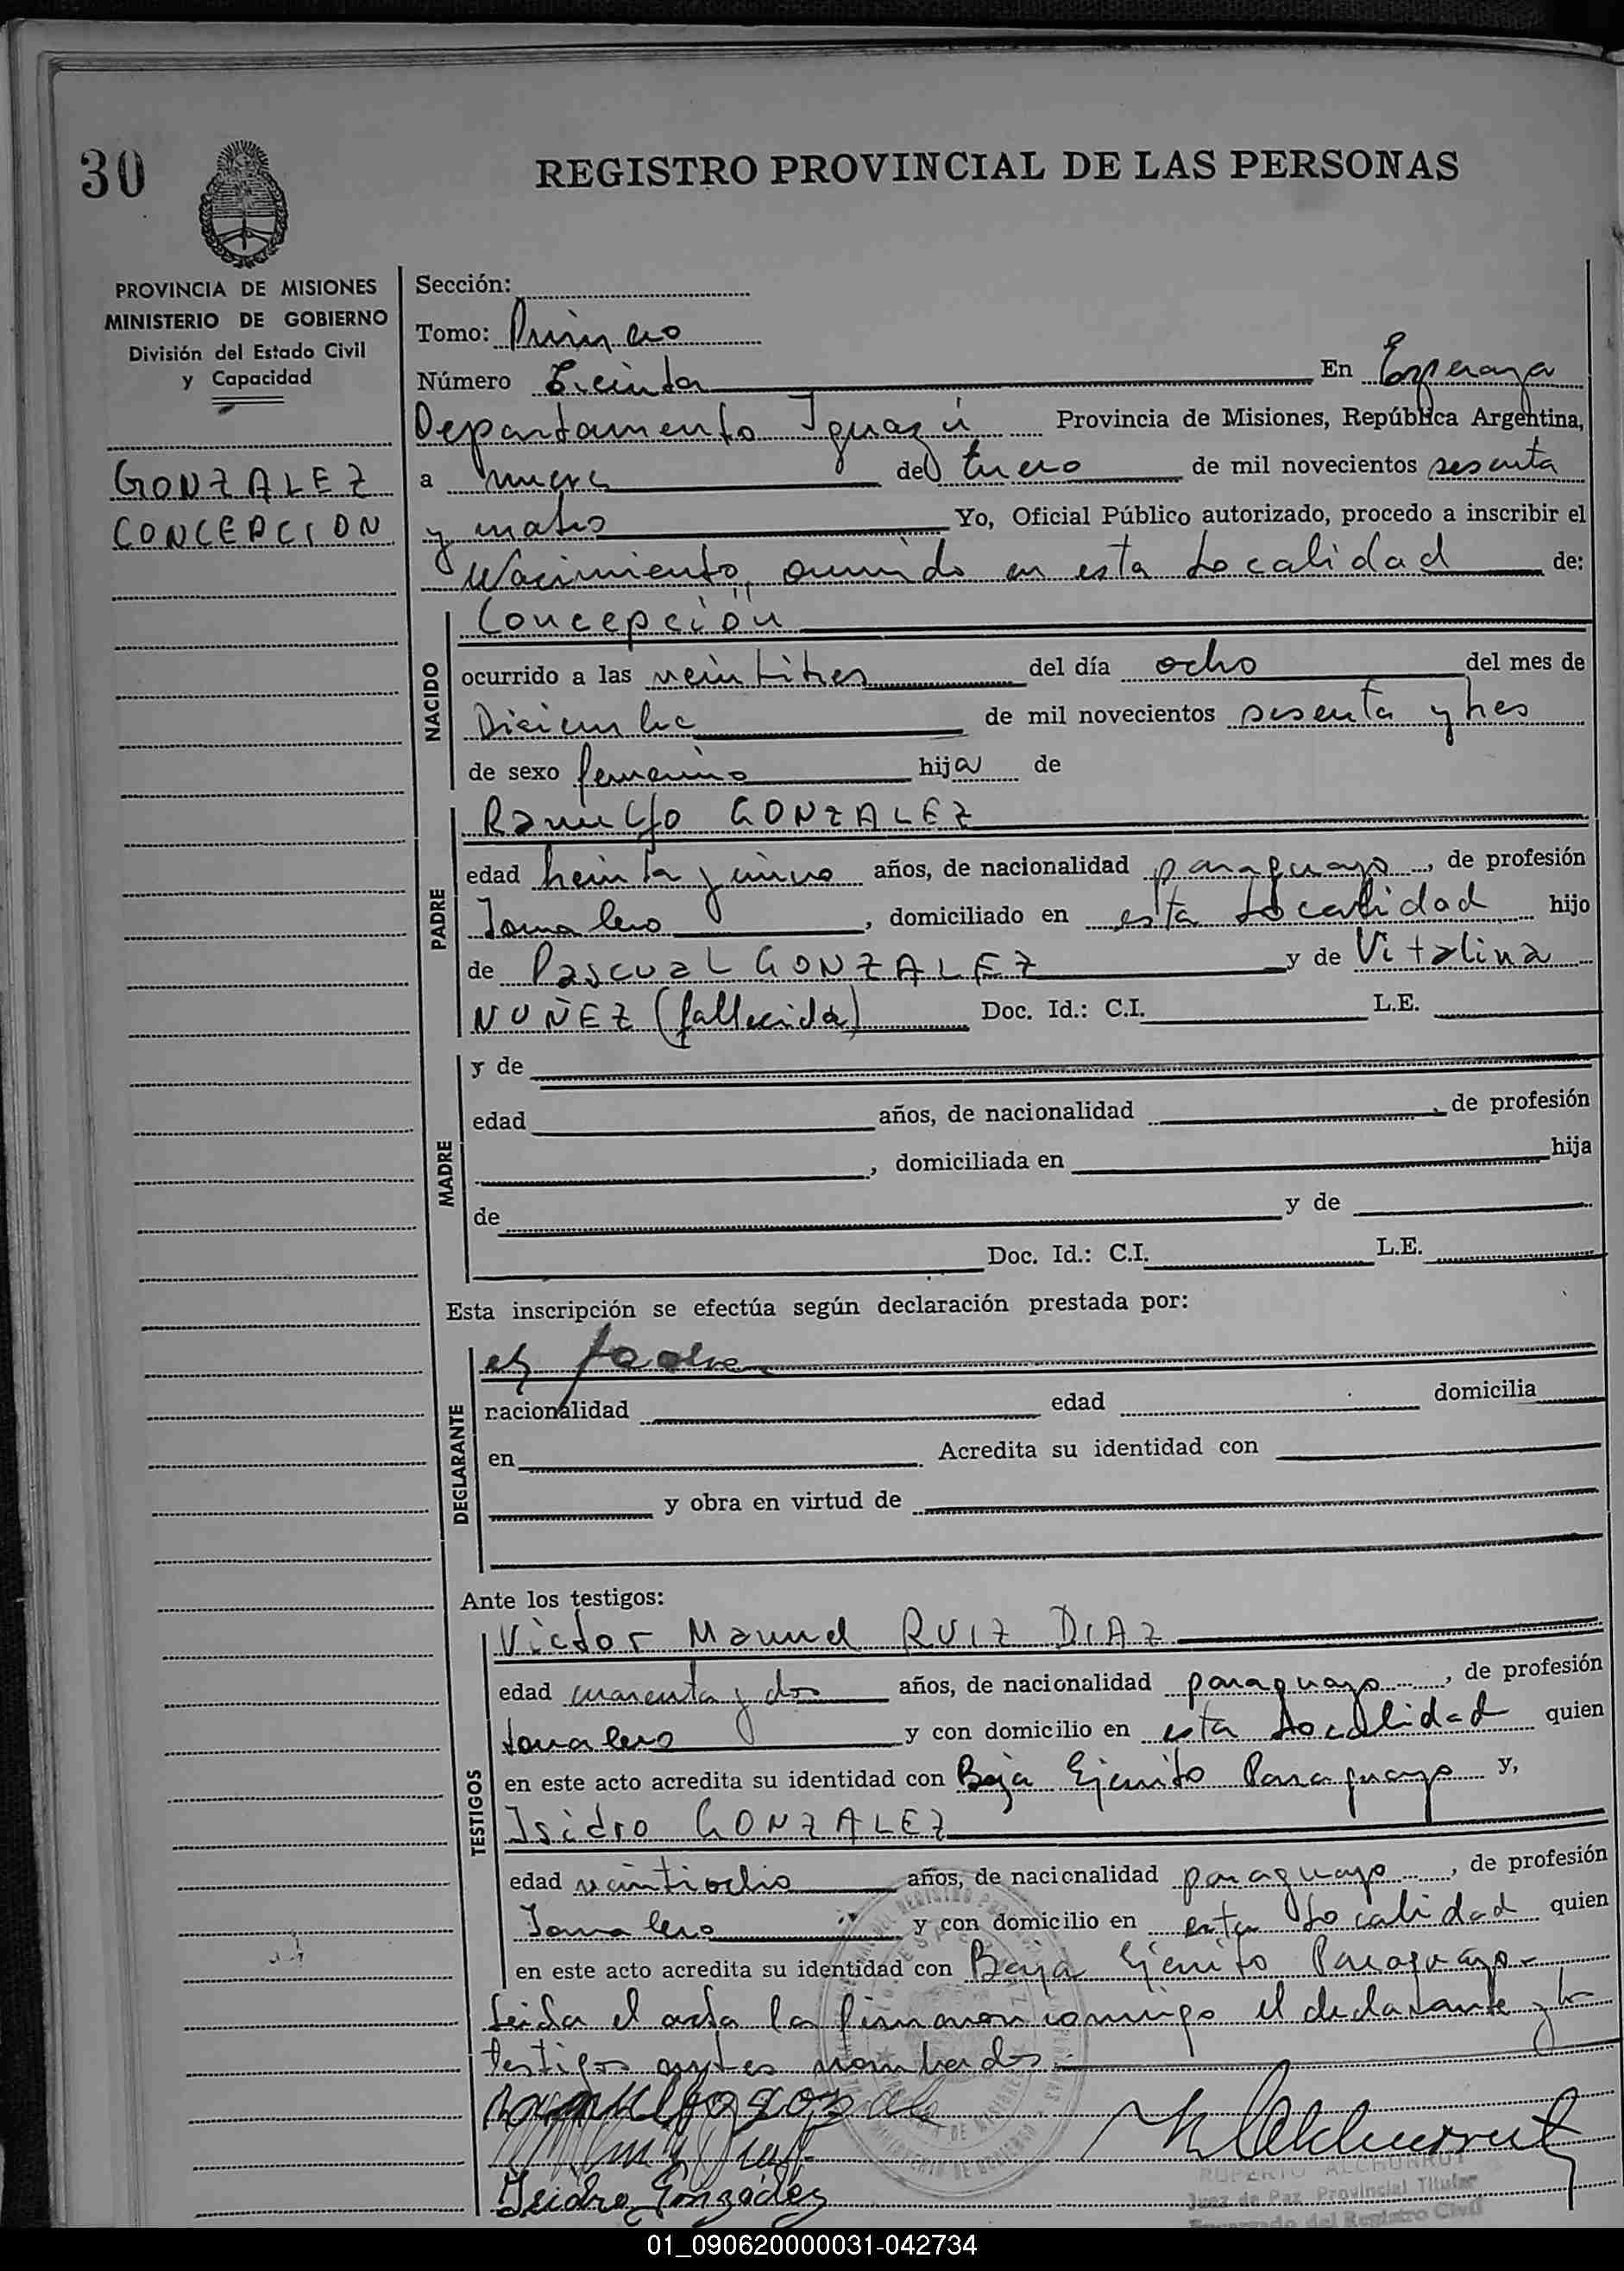 30
REGISTRO PROVINCIAL DE LAS PERSONAS
PROVINCIA DE MISIONES
MINISTERIO DE GOBIERNO
División del Estado Civil
y Capacidad
GONZALEZ
CONCEPCION
Sección:
Tomo: Primero
Número Treinta En Esperanza
Departamento Iguazú Provincia de Misiones, República Argentina,
a nueve de Enero de mil novecientos sesenta
y cuatro Yo, Oficial Público autorizado, procedo a inscribir el
Nacimiento, ocurrido en esta Localidad de:
NACIDO
Concepción
ocurrido a las veintitres del día ocho del mes de
Diciembre de mil novecientos sesenta y tres
de sexo femenino hija de
PADRE
Ranulfo GONZALEZ
edad treinta y cinco años, de nacionalidad paraguayo, de profesión
Jornalero, domiciliado en esta Localidad hijo
de Pascual GONZALEZ y de Vitalina
NUÑEZ (fallecida) Doc. Id.: C.I. L.E.
MADRE
y de
edad años, de nacionalidad , de profesión
, domiciliada en hija
de y de
Doc. Id.: C.I. L.E.
Esta inscripción se efectúa según declaración prestada por:
DECLARANTE
el padre
nacionalidad edad domicilia
en . Acredita su identidad con
y obra en virtud de
Ante los testigos:
TESTIGOS
Victor Manuel RUIZ DIAZ
edad cuarenta y dos años, de nacionalidad paraguayo, de profesión
Jornalero y con domicilio en esta Localidad quien
en este acto acredita su identidad con Baja Ejercito Paraguayo y,
Isidro GONZALEZ
edad veintiocho años, de nacionalidad paraguayo, de profesión
Jornalero y con domicilio en esta Localidad quien
en este acto acredita su identidad con Baja Ejercito Paraguayo.-
Leida el acta la firmaron conmigo el declarante y los
testigos antes nombrados.-
Isidro González
RUPERTO ALCHURRUT
Juez de Paz Provincial Titular
Encargado del Registro Civil
01_090620000031-042734